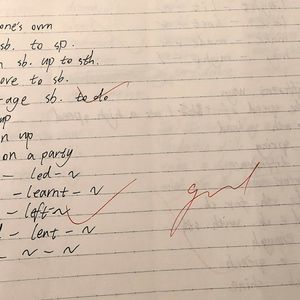 one's own
sb. to sp.
sb. up to sth.
ove to sb.
age sb. to do
up
n up
on a party
- led - ~
- learnt - ~
- left - ~
- lent - ~
- ~ - ~